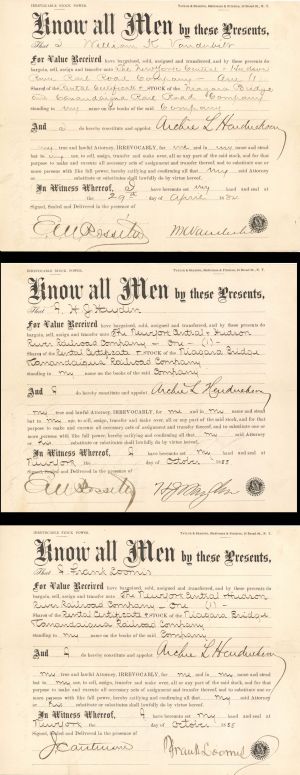 IRREVOCABLE STOCK POWER.
Know all Men by these Presents,
That I William K Vanderbilt
For Value Received have bargained, sold, assigned and transferred, and by these presents do
bargain, sell, assign and transfer unto The New York Central & Hudson
River Rail Road Company - One (1) -
Shares of the Rental Certificate & STOCK of the Niagara Bridge
and Canandaigua Rail Road Company
standing in my name on the books of the said Company
And I do hereby constitute and appoint Archie L Hendrickson
my true and lawful Attorney, IRREVOCABLY, for me and in my name and stead
but to my use, to sell, assign, transfer and make over all or any part of the said stock, and for that
purpose to make and execute all necessary acts of assignment and transfer thereof, and to substitute one or
more persons with like full power, hereby ratifying and confirming all that my said Attorney
or substitute or substitutes shall lawfully do by virtue hereof.
In Witness Whereof, I have hereunto set my hand and seal at
the 29th day of April
Signed, Sealed and Delivered in the presence of
E W Rossiter
W K Vanderbilt
IRREVOCABLE STOCK POWER.
Know all Men by these Presents,
That I, H J Hayden
For Value Received have bargained, sold, assigned and transferred, and by these presents do
bargain, sell, assign and transfer unto The New York Central & Hudson
River Railroad Company - One - (1) -
Shares of the Rental Certificate & STOCK of the Niagara Bridge
& Canandaigua Railroad Company
standing in my name on the books of the said Company
And I do hereby constitute and appoint Archie L Hendrickson
my true and lawful Attorney, IRREVOCABLY, for me and in my name and stead
but to my use, to sell, assign, transfer and make over all or any part of the said stock, and for that
purpose to make and execute all necessary acts of assignment and transfer thereof, and to substitute one or
more persons with like full power, hereby ratifying and confirming all that my said Attorney
or his substitute or substitutes shall lawfully do by virtue hereof.
In Witness Whereof, I have hereunto set my hand and seal at
New York the day of October 1885
Signed, Sealed and Delivered in the presence of
E W Rossiter
H J Hayden
IRREVOCABLE STOCK POWER.
Know all Men by these Presents,
That I Frank Loomis
For Value Received have bargained, sold, assigned and transferred, and by these presents do
bargain, sell, assign and transfer unto The New York Central & Hudson
River Railroad Company - One (1) -
Shares of the Rental Certificate & STOCK of the Niagara Bridge
& Canandaigua Railroad Company
standing in my name on the books of the said Company
And I do hereby constitute and appoint Archie L Hendrickson
my true and lawful Attorney, IRREVOCABLY, for me and in my name and stead
but to my use, to sell, assign, transfer and make over all or any part of the said stock, and for that
purpose to make and execute all necessary acts of assignment and transfer thereof, and to substitute one or
more persons with like full power, hereby ratifying and confirming all that my said Attorney
or his substitute or substitutes shall lawfully do by virtue hereof.
In Witness Whereof, I have hereunto set my hand and seal at
New York the day of October 1885
Signed, Sealed and Delivered in the presence of
Frank Loomis